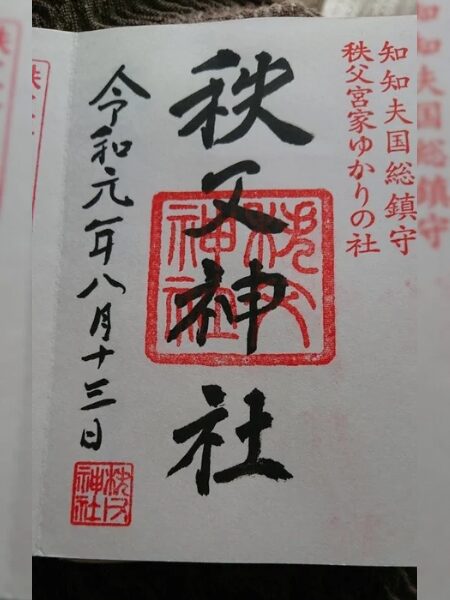 知知夫国総鎮守
秩父宮家ゆかりの社
秩父神社
秩父
神社
令和元年八月十三日
秩父
神社